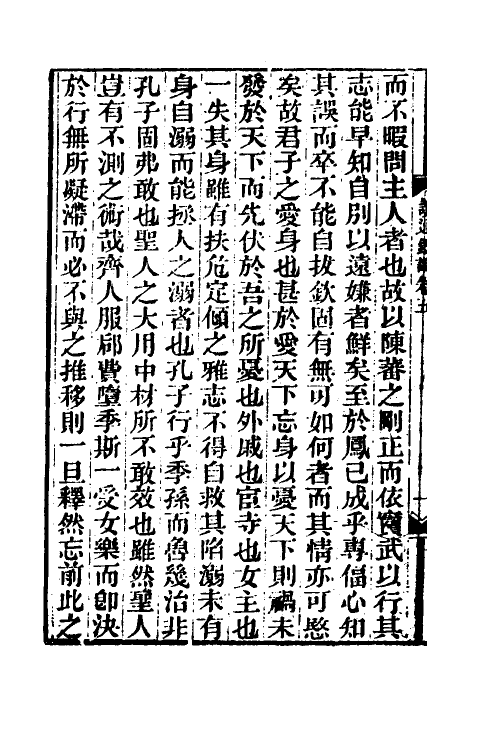 而不暇問主人者也故以陳蕃之剛正而依竇武以行其
志能早知自別以遠嫌者鮮矣至於鳳已成乎專偪心知
其誤而卒不能自拔欽固有無可如何者而其情亦可愍
矣故君子之愛身也甚於愛天下忘身以憂天下則禍未
發於天下而先伏於吾之所憂也外戚也宦寺也女主也
一失其身雖有扶危定傾之雅志不得自救其陷溺未有
身自溺而能拯人之溺者也孔子行乎季孫而魯幾治非
孔子固弗敢也聖人之大用中材所不敢效也雖然聖人
豈有不測之術哉齊人服郈費墮季斯一受女樂而卽決
於行無所凝滯而必不與之推移則一旦釋然忘前此之
讀通鑑論卷五